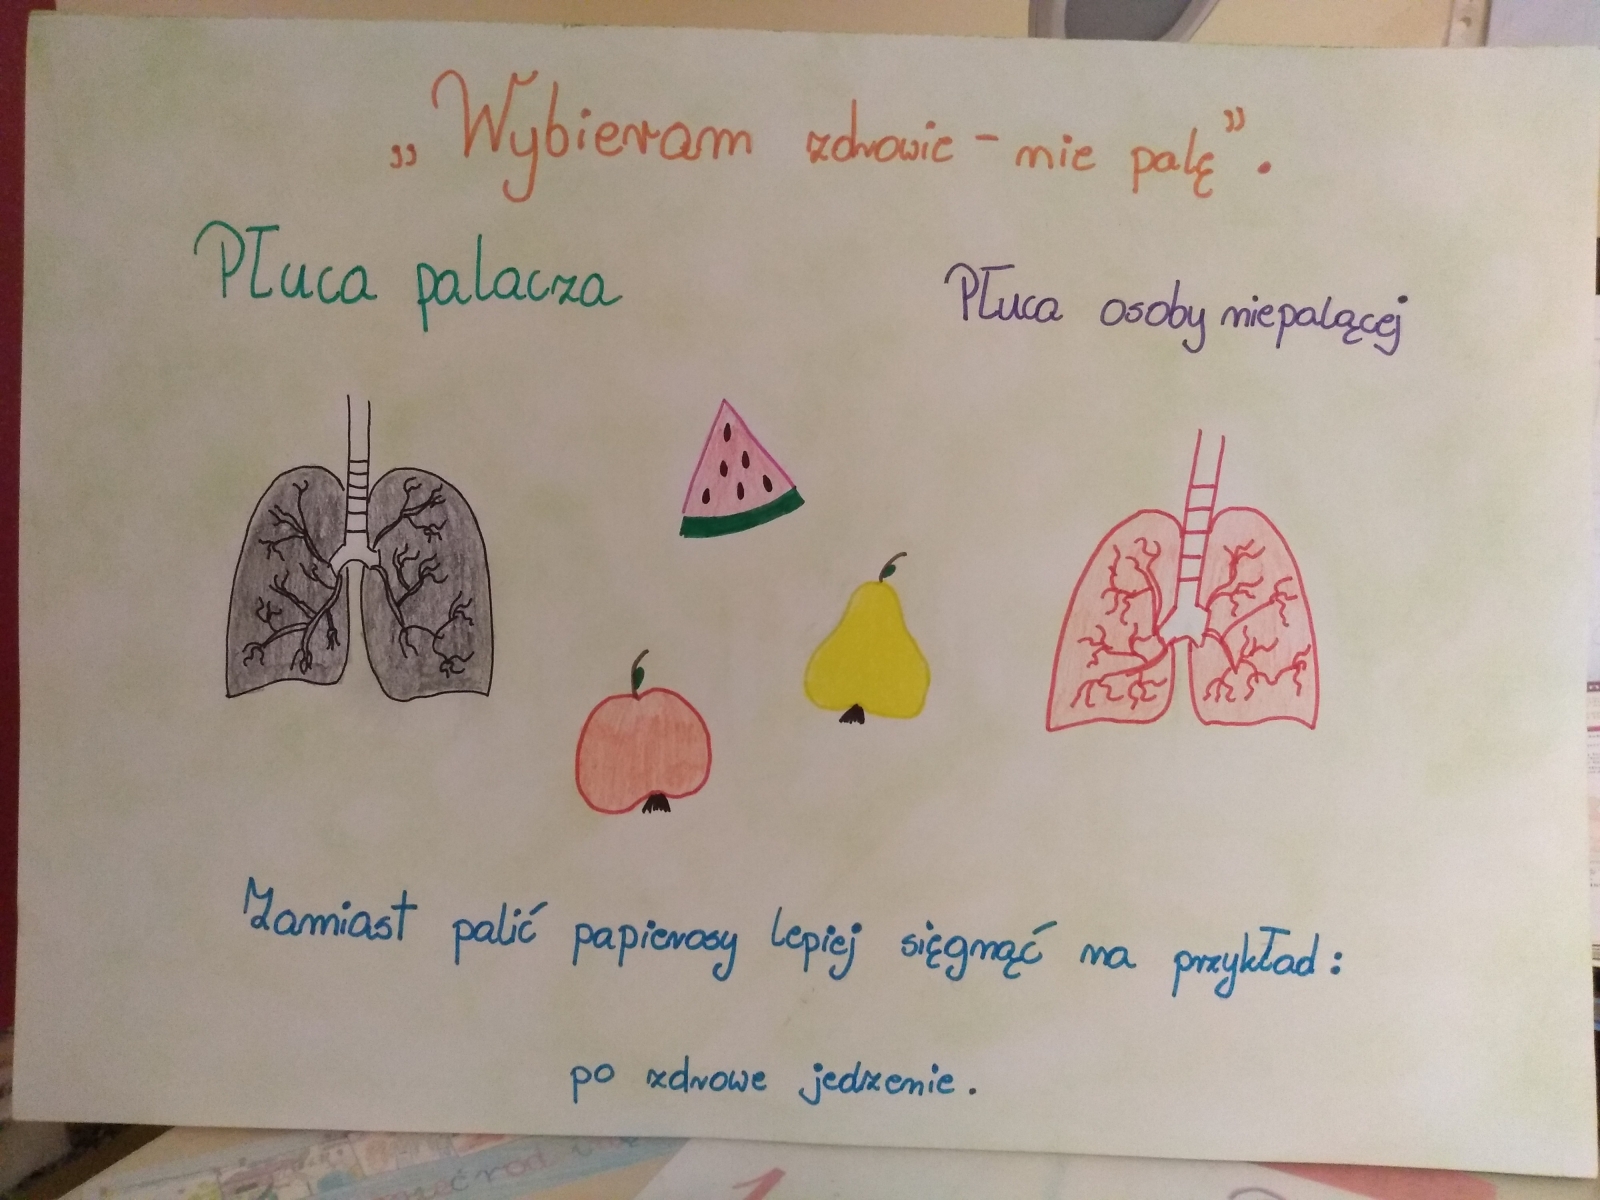 „Wybieram zdrowie - nie palę”.
Płuca palacza
Płuca osoby niepalącej
Zamiast palić papierosy lepiej sięgnąć na przykład:
po zdrowe jedzenie.